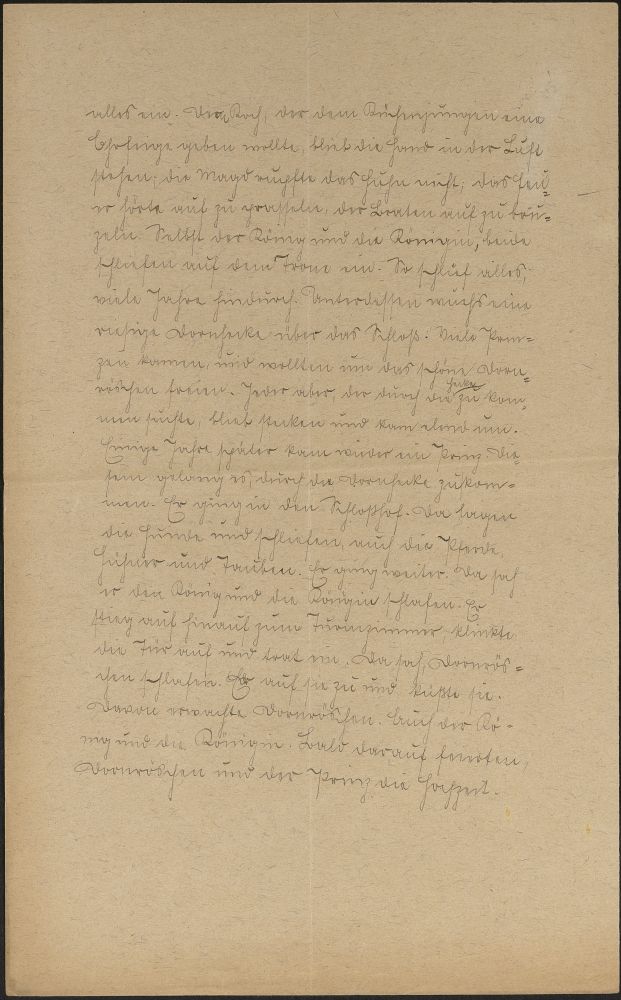 alles ein. Der Koch, der dem Küchenjungen eine
Ohrfeige geben wollte, blieb die Hand in der Luft
stehen; die Magd rupfte das Huhn nicht; das Feu=
er hörte auf zu prasseln, der Braten auf zu brut=
zeln. Selbst der König und die Königin, beide
schliefen auf dem Trone ein. So schlief alles,
viele Jahre hindurch. Unterdessen wuchs eine
riesige Dornhecke über das Schloß. Viele Prin=
zen kamen, und wollten um das schöne Dorn=
röschen freien. Jeder aber, der durch die Hecke zu kom=
men suchte, blieb stecken und kam elend um.
Einige Jahre später kam wieder ein Prinz. Die=
sem gelang es, durch die Dornhecke zukom=
men. Er ging in den Schloßhof. Da lagen
die Hunde und schliefen, auch die Pferde,
Hühner und Tauben. Er ging weiter. Da sah
er den König und die Königin schlafen. Er
stieg auf hinauf zum Turmzimmer, klinkte
die Tür auf und trat ein. Da sah, Dornrös=
chen schlafen. Er auf sie zu und küßte sie.
Davon erwachte Dornröschen. Auch der Kö-
nig und die Königin. Bald darauf feierten,
Dornröschen und der Prinz die Hochzeit.